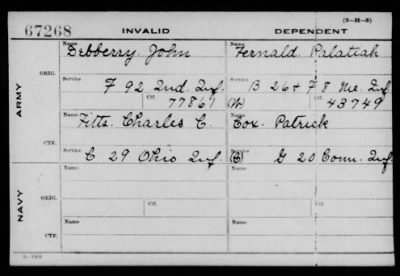 (3-H-5)
67268 INVALID DEPENDENT
Name Name
Debberry John Fernald Palatiah
ORIG. Service Service
F 92 Ind. Inf B 26 + F 8 Me. Inf
Ctf. 77867 (W) Ctf. 43749
ARMY
Name Name
Fitts. Charles C. Cox. Patrick
CTF. Service Service
C 29 Ohio Inf. G 20 Conn. Inf
Name Name
ORIG. Service Service
Ctf. Ctf.
NAVY
Name Name
CTF. Service Service